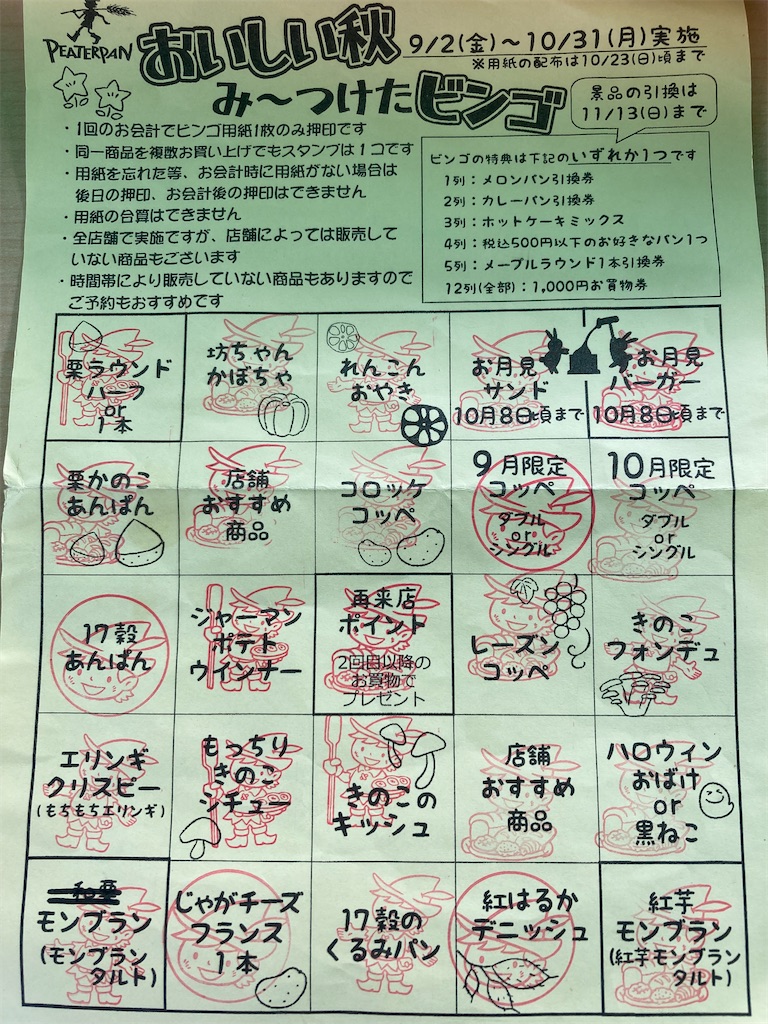 PEATERPAN
おいしい秋
9/2(金)~10/31(月)実施
※用紙の配布は10/23(日)頃まで
み~つけたビンゴ
景品の引換は
11/13(日)まで
・1回のお会計でビンゴ用紙1枚のみ押印です
・同一商品を複数お買い上げでもスタンプは1コです
・用紙を忘れた等、お会計時に用紙がない場合は
後日の押印、お会計後の押印はできません
・用紙の合算はできません
・全店舗で実施ですが、店舗によっては販売して
いない商品もございます
・時間帯により販売していない商品もありますので
ご予約もおすすめです
ビンゴの特典は下記のいずれか1つです
1列:メロンパン引換券
2列:カレーパン引換券
3列:ホットケーキミックス
4列:税込500円以下のお好きなパン1つ
5列:メープルラウンド1本引換券
12列(全部):1,000円お買物券
栗ラウンド
ハーフ
or
1本
坊ちゃん
かぼちゃ
れんこん
おやき
お月見
サンド
10月8日頃まで
お月見
バーガー
10月8日頃まで
栗かのこ
あんぱん
店舗
おすすめ
商品
コロッケ
コッペ
9月限定
コッペ
ダブル
or
シングル
10月限定
コッペ
ダブル
or
シングル
17穀
あんぱん
ジャーマン
ポテト
ウインナー
再来店
ポイント
2回目以降の
お買物で
プレゼント
レーズン
コッペ
きのこ
フォンデュ
エリンギ
クリスピー
(もちもちエリンギ)
もっちり
きのこ
シチュー
きのこの
キッシュ
店舗
おすすめ
商品
ハロウィン
おばけ
or
黒ねこ
和栗
モンブラン
(モンブラン
タルト)
じゃがチーズ
フランス
1本
17穀の
くるみパン
紅はるか
デニッシュ
紅芋
モンブラン
(紅芋モンブラン
タルト)